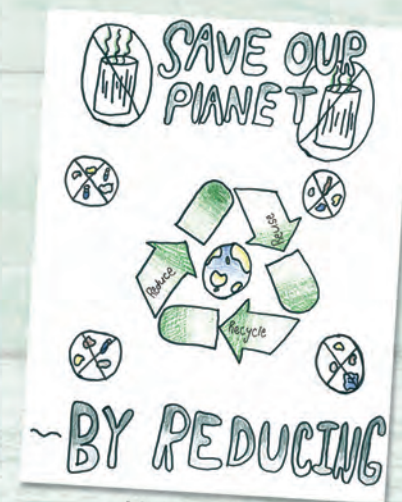 SAVE OUR
PLANET
Reuse
Reduce
Recycle
~BY REDUCING